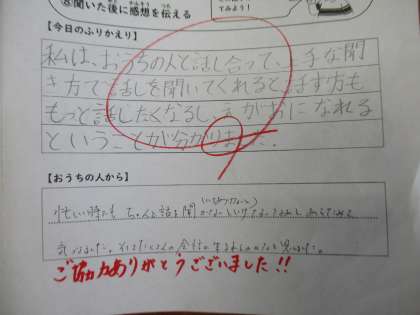 ⑧聞いた後に感想を伝える
てみよう!
【今日のふりかえり】
私は、おうちの人と話し合って、上手な聞
き方で話しを聞いてくれると、話す方も
もっと話したくなるし、えがおになれる
ということが分かりました。
【おうちの人から】
忙しい時でも ちゃんと話を聞かないといけないなと あらためて
ご協力ありがとうございました!!